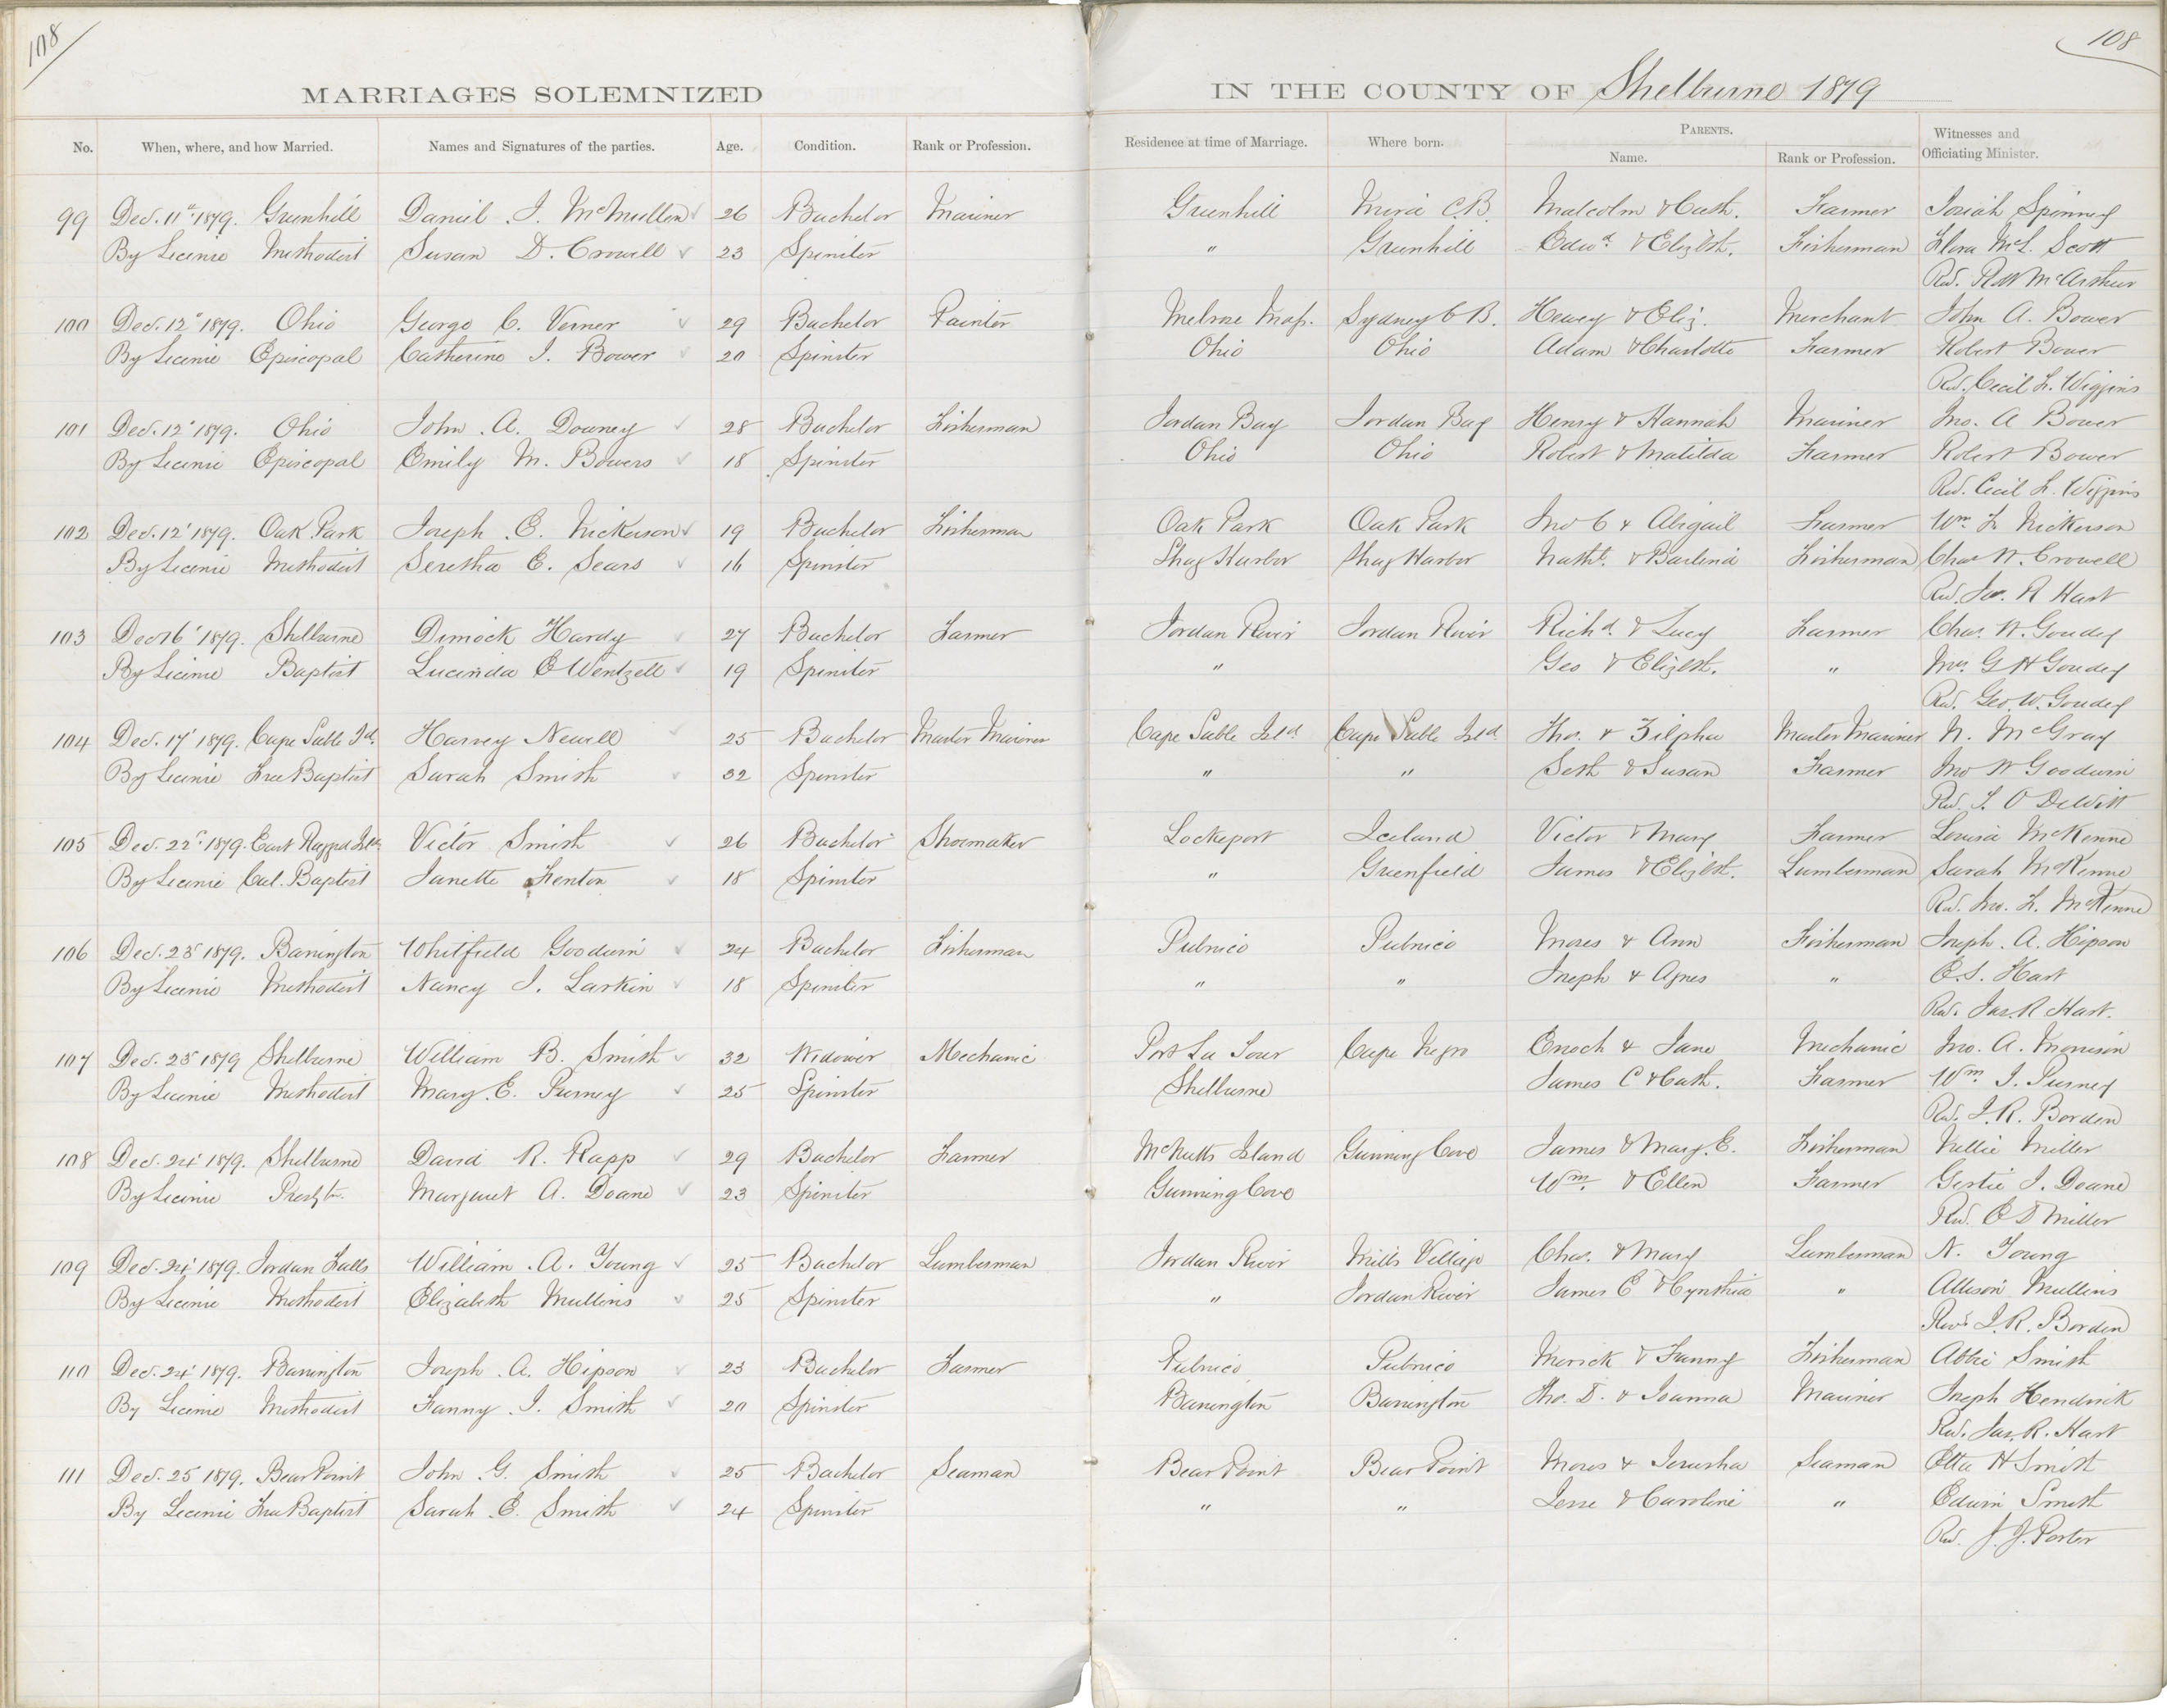 108
108
MARRIAGES SOLEMNIZED IN THE COUNTY OF Shelburne 1879
No. When, where, and how Married. Names and Signatures of the parties. Age. Condition. Rank or Profession. Residence at time of Marriage. Where born. PARENTS. Name. Rank or Profession. Witnesses and Officiating Minister.
99 Dec. 11th 1879. Greenhill Daniel J. McMullen 26 Bachelor Mariner Greenhill Mira C.B. Malcolm & Cath. Farmer Josiah Spinney
By Licence Methodist Susan D. Crowell 23 Spinster " Greenhill Edwd & Elizbth. Fisherman Flora McL. Scott
Rev. Robt McArthur
100 Dec. 12" 1879. Ohio George C. Verner 29 Bachelor Painter Melrose Mass. Sydney C B. Henry & Eliz. Merchant John A. Bower
By Licence Episcopal Catherine J. Bower 20 Spinster Ohio Ohio Adam & Charlotte Farmer Robert Bower
Rev. Cecil F. Wiggins
101 Dec. 12" 1879. Ohio John A. Downey 28 Bachelor Fisherman Jordan Bay Jordan Bay Henry & Hannah Mariner Jno. A Bower
By Licence Episcopal Emily M. Bowers 18 Spinster Ohio Ohio Robert & Matilda Farmer Robert Bower
Rev. Cecil F. Wiggins
102 Dec. 12' 1879. Oak Park Joseph E. Nickerson 19 Bachelor Fisherman Oak Park Oak Park Jno C & Abigail Farmer Wm. F Nickerson
By Licence Methodist Seretha E. Sears 16 Spinster Shag Harbor Shag Harbor Nathl. & Barlina Fisherman Chas W. Crowell
Rev. Jas. R Hart
103 Dec 16' 1879. Shelburne Dimock Hardy 27 Bachelor Farmer Jordan River Jordan River Richd. & Lucy Farmer Chas. W. Goudey
By Licence Baptist Lucinda E Wentzell 19 Spinster " Geo & Elizbth. " Mrs. G H Goudey
Rev. Geo. W. Goudey
104 Dec. 17' 1879. Cape Sable Id. Harvey Newell 25 Bachelor Master Mariner Cape Sable Isld Cape Sable Isld. Thos. & Zilpha Master Mariner N. McGray
By Licence Free Baptist Sarah Smith 32 Spinster " " Seth & Susan Farmer Jno W Goodwin
Rev. T. O DeWitt
105 Dec. 22" 1879. East Ragged Isld Victor Smith 26 Bachelor Shoemaker Lockeport Iceland Victor & Mary Farmer Louisa McKenne
By Licence Cal. Baptist Janette Fenton 18 Spinster " Greenfield James & Elizbt. Lumberman Sarah McKenne
Rev. Jno. F. McKenne
106 Dec. 23' 1879. Barrington Whitfield Goodwin 24 Bachelor Fisherman Pubnico Pubnico Moses & Ann Fisherman Joseph. A. Hipson
By Licence Methodist Nancy J. Larkin 18 Spinster " " Joseph & Agnes " E. S. Hart
Rev. Jas. R Hart.
107 Dec. 23' 1879 Shelburne William B. Smith 32 Widower Mechanic Port La Tour Cape Negro Enoch & Jane Mechanic Jno. A. Morrison
By Licence Methodist Mary E. Purney 25 Spinster Shelburne James C & Cath. Farmer Wm. J. Purney
Rev. J. R. Borden
108 Dec. 24' 1879. Shelburne David R. Rapp 29 Bachelor Farmer McNutts Island Gunning Cove James & Mary. E. Fisherman Nellie Miller
By Licence Presbytn. Margaret A. Doane 23 Spinster Gunning Cove Wm. & Ellen Farmer Gertie J. Doane
Rev. E D Miller
109 Dec. 24' 1879. Jordan Falls William. A. Young 25 Bachelor Lumberman Jordan River Mills Village Chas. & Mary Lumberman N. Young
By Licence Methodist Elizabeth Mullins 25 Spinster " Jordan River James E & Cynthia " Allison Mullins
Revd J. R. Borden
110 Dec. 24' 1879. Barrington Joseph. A. Hipson 23 Bachelor Farmer Pubnico Pubnico Merick & Fanny Fisherman Abbie Smith
By Licence Methodist Fanny J. Smith 20 Spinster Barrington Barrington Tho. D. & Joanna Mariner Joseph Hendrick
Rev. Jas. R. Hart
111 Dec. 25 1879. Bear Point John G. Smith 25 Bachelor Seaman Bear Point Bear Point Moses & Jerusha Seaman Etta H Smith
By Licence Free Baptist Sarah E. Smith 24 Spinster " " Jesse & Caroline " Edwin Smith
Rev. J. J. Porter